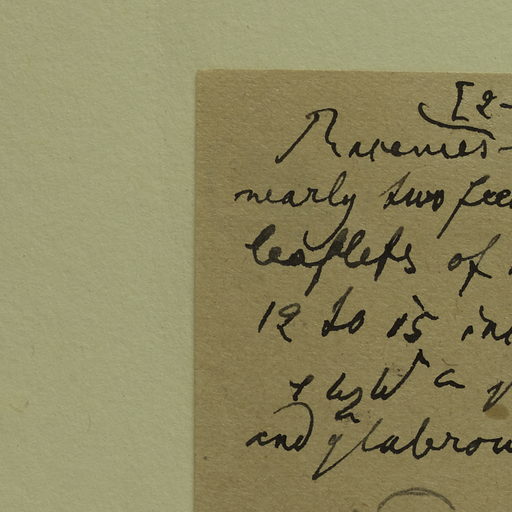 [2-
Racemes
nearly two feet
leaflets of
12 to 15 in
a
and glabrou